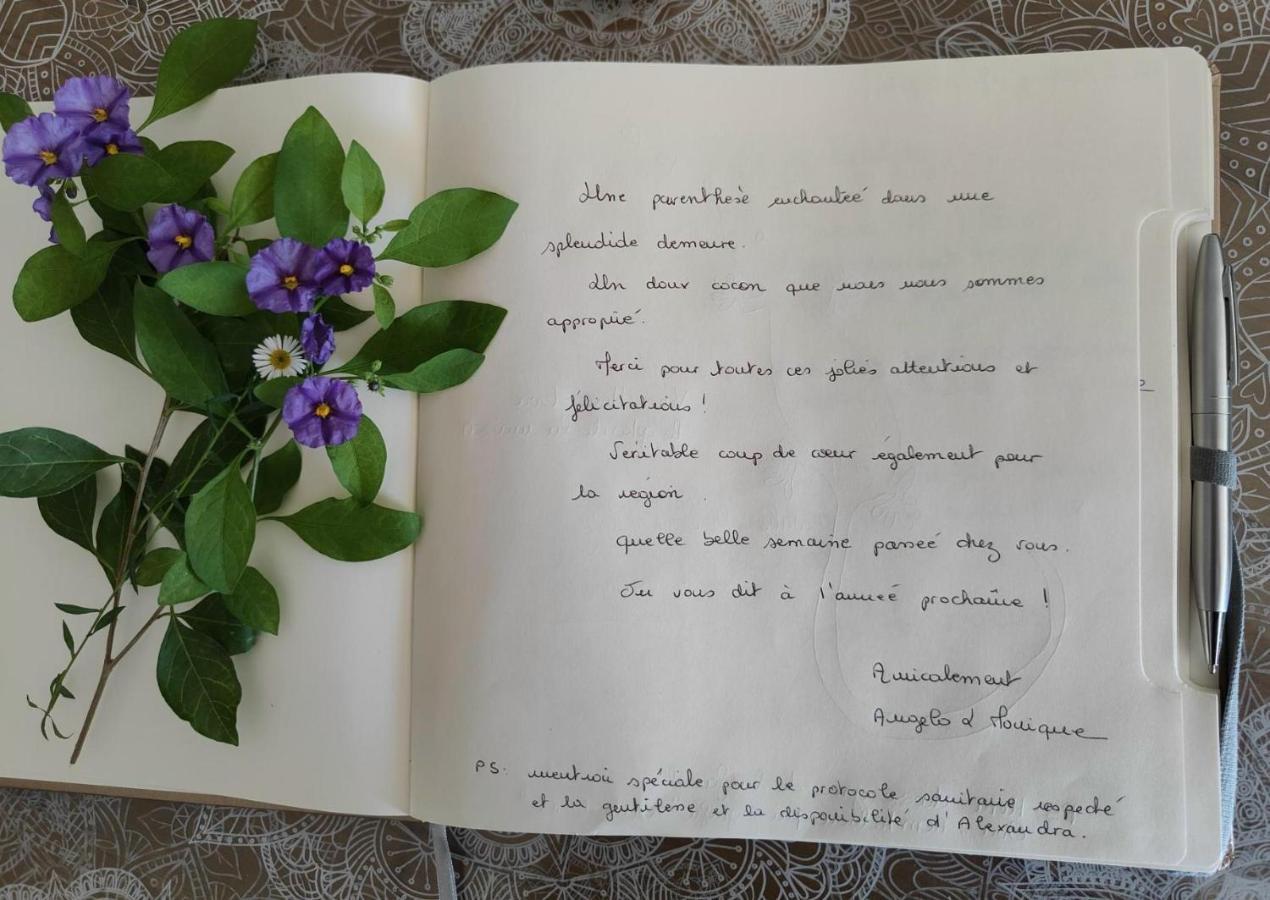 Une parenthèse enchantée dans une
splendide demeure.
Un doux cocon que nous nous sommes
approprié.
Merci pour toutes ces jolies attentions et
félicitations !
Véritable coup de cœur également pour
la région.
quelle belle semaine passée chez vous.
On vous dit à l'année prochaine !
Amicalement
Angelo & Monique
PS: mention spéciale pour le protocole sanitaire respecté
et la gentillesse et la disponibilité d'Alexandra.